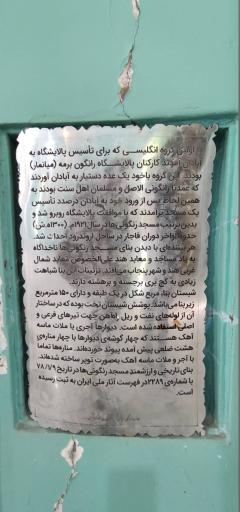 اولین گروه انگلیسی که برای تأسیس پالایشگاه به
آبادان آمدند کارکنان پالایشگاه رانگون برمه (میانمار)
بودند. این گروه باخود یک عده دستیار به آبادان آوردند
که عمدتا رانگونی الاصل و مسلمان اهل سنت بودند به
همین لحاظ پس از ورود خود به آبادان درصدد تأسیس
یک مسجد برآمدند که با موافقت پالایشگاه روبرو شد و
بدین ترتیب مسجد رنگونی ها در سال ۱۹۲۱م. (۱۳۰۰ه.ش)
حدوداً اواخر دوران قاجار در ساحل اروندرود احداث شد.
هر بیننده‌ای با دیدن بنای مسجد رنگونی ها ناخداگاه
به یاد مساجد و معابد هند علی‌الخصوص معابد شمال
غربی هند و شهر پنجاب می‌افتد. تزئینات این بنا شباهت
زیادی به گچ بری برجسته و برهشته دارند.
شبستان بنا، مربع شکل در یک طبقه و دارای ۱۵۰ مترمربع
زیربنا می‌باشد. پوشش شبستان تخت بوده که در ساختار
آن از لوله‌های نفت و ریل راه‌آهن جهت تیرهای فرعی و
اصلی استفاده شده است. دیوارها آجری با ملات ماسه
آهک هستند که چهار گوشه‌ی دیوارها با چهار مناره‌ی
هشت ضلعی پیش آمده پیوند خورده‌اند. مناره‌ها تماما
با آجر و ملات ماسه آهک به‌صورت توپر ساخته شده‌اند.
بنای تاریخی و ارزشمند مسجد رنگونی‌ها در تاریخ ۷۸/۷۹
با شماره‌ی ۲۲۸۹ در فهرست آثار ملی ایران به ثبت رسیده
است.